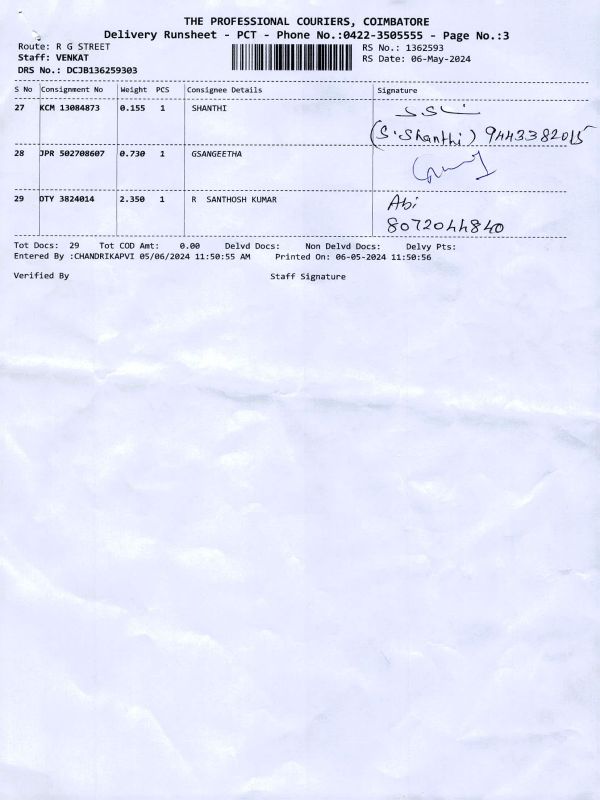 THE PROFESSIONAL COURIERS, COIMBATORE
Delivery Runsheet - PCT - Phone No.:0422-3505555 - Page No.:3
Route: R G STREET RS No.: 1362593
Staff: VENKAT RS Date: 06-May-2024
DRS No.: DCJB136259303
S No Consignment No Weight PCS Consignee Details Signature
27 KCM 13084873 0.155 1 SHANTHI
(S.Shanthi) 9443382015
28 JPR 502708607 0.730 1 GSANGEETHA
29 DTY 3824014 2.350 1 R SANTHOSH KUMAR Abi
8072044840
Tot Docs: 29 Tot COD Amt: 0.00 Delvd Docs: Non Delvd Docs: Delvy Pts:
Entered By :CHANDRIKAPVI 05/06/2024 11:50:55 AM Printed On: 06-05-2024 11:50:56
Verified By Staff Signature